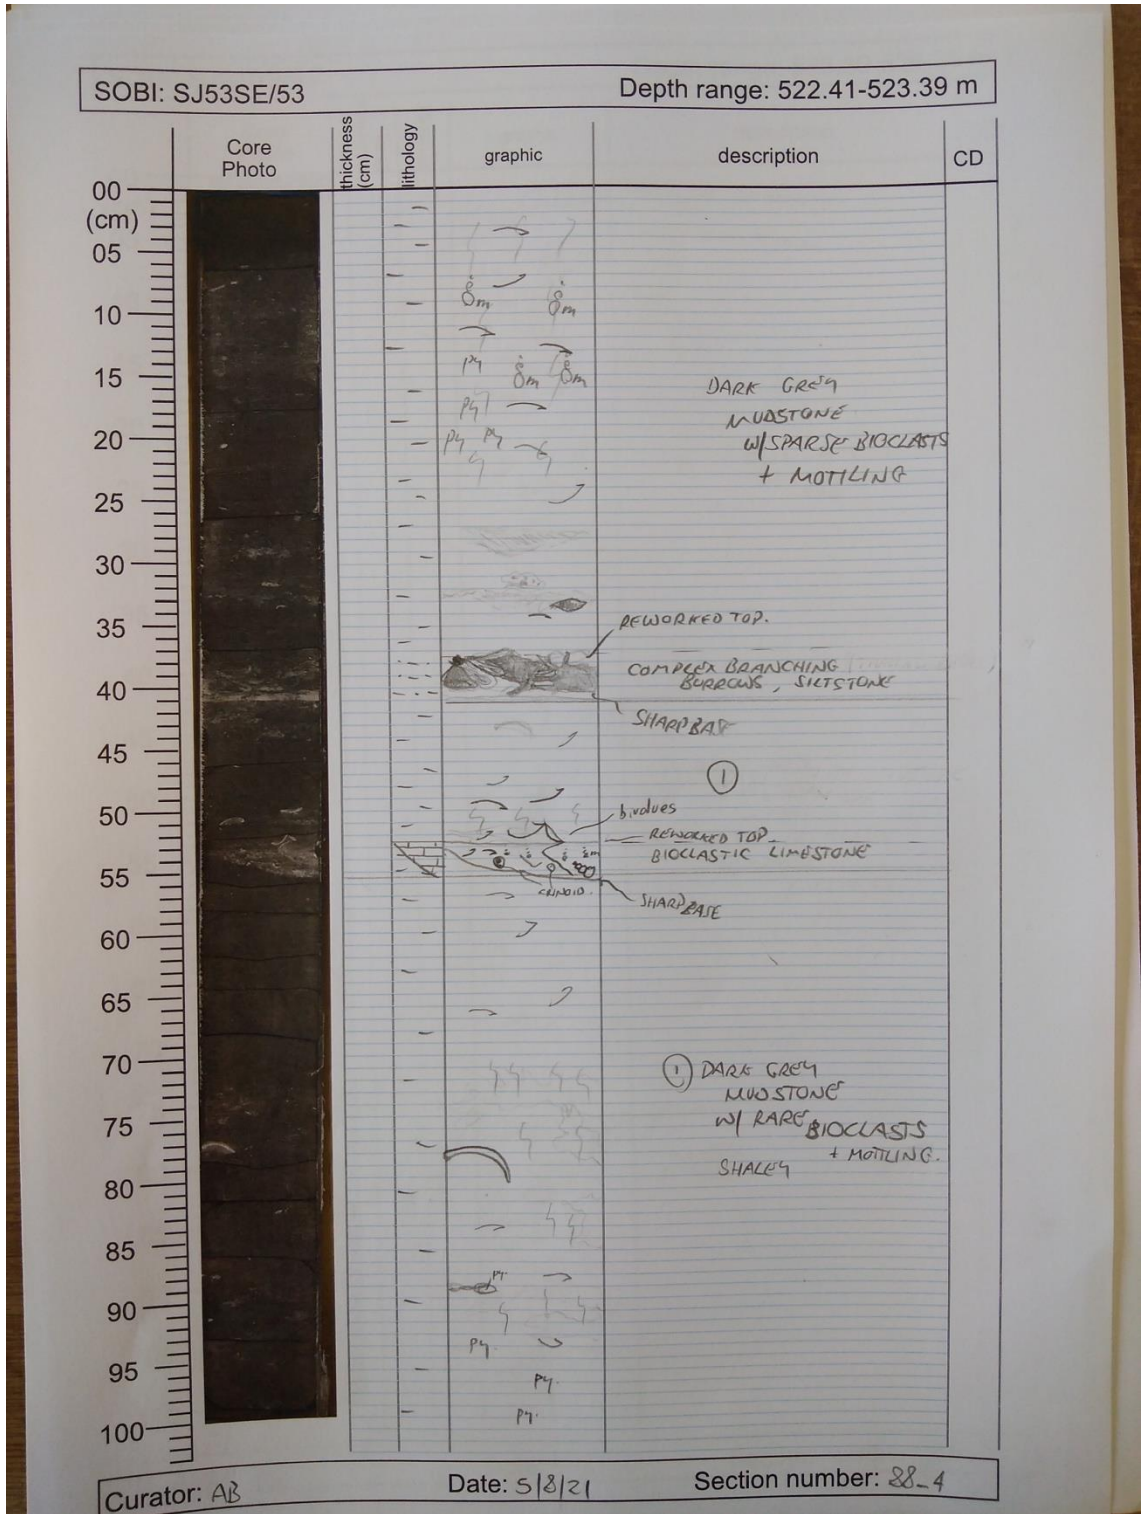 SOBI: SJ53SE/53
Depth range: 522.41-523.39 m
Core Photo
thickness (cm)
lithology
graphic
description
CD
00
(cm)
05
10
15
20
25
30
35
40
45
50
55
60
65
70
75
80
85
90
95
100
m
m
py
m
m
py
py py
DARK GREY
MUDSTONE
W/SPARSE BIOCLASTS
+ MOTTLING
REWORKED TOP.
COMPLEX BRANCHING
BURROWS, SILTSTONE
SHARP BASE
1
bivalves
REWORKED TOP
BIOCLASTIC LIMESTONE
CRINOID.
SHARP BASE
1 DARK GREY
MUDSTONE
W/ RARE BIOCLASTS
+ MOTTLING.
SHALEY
py.
py.
py.
py.
Curator: AB
Date: 5/8/21
Section number: 88_4